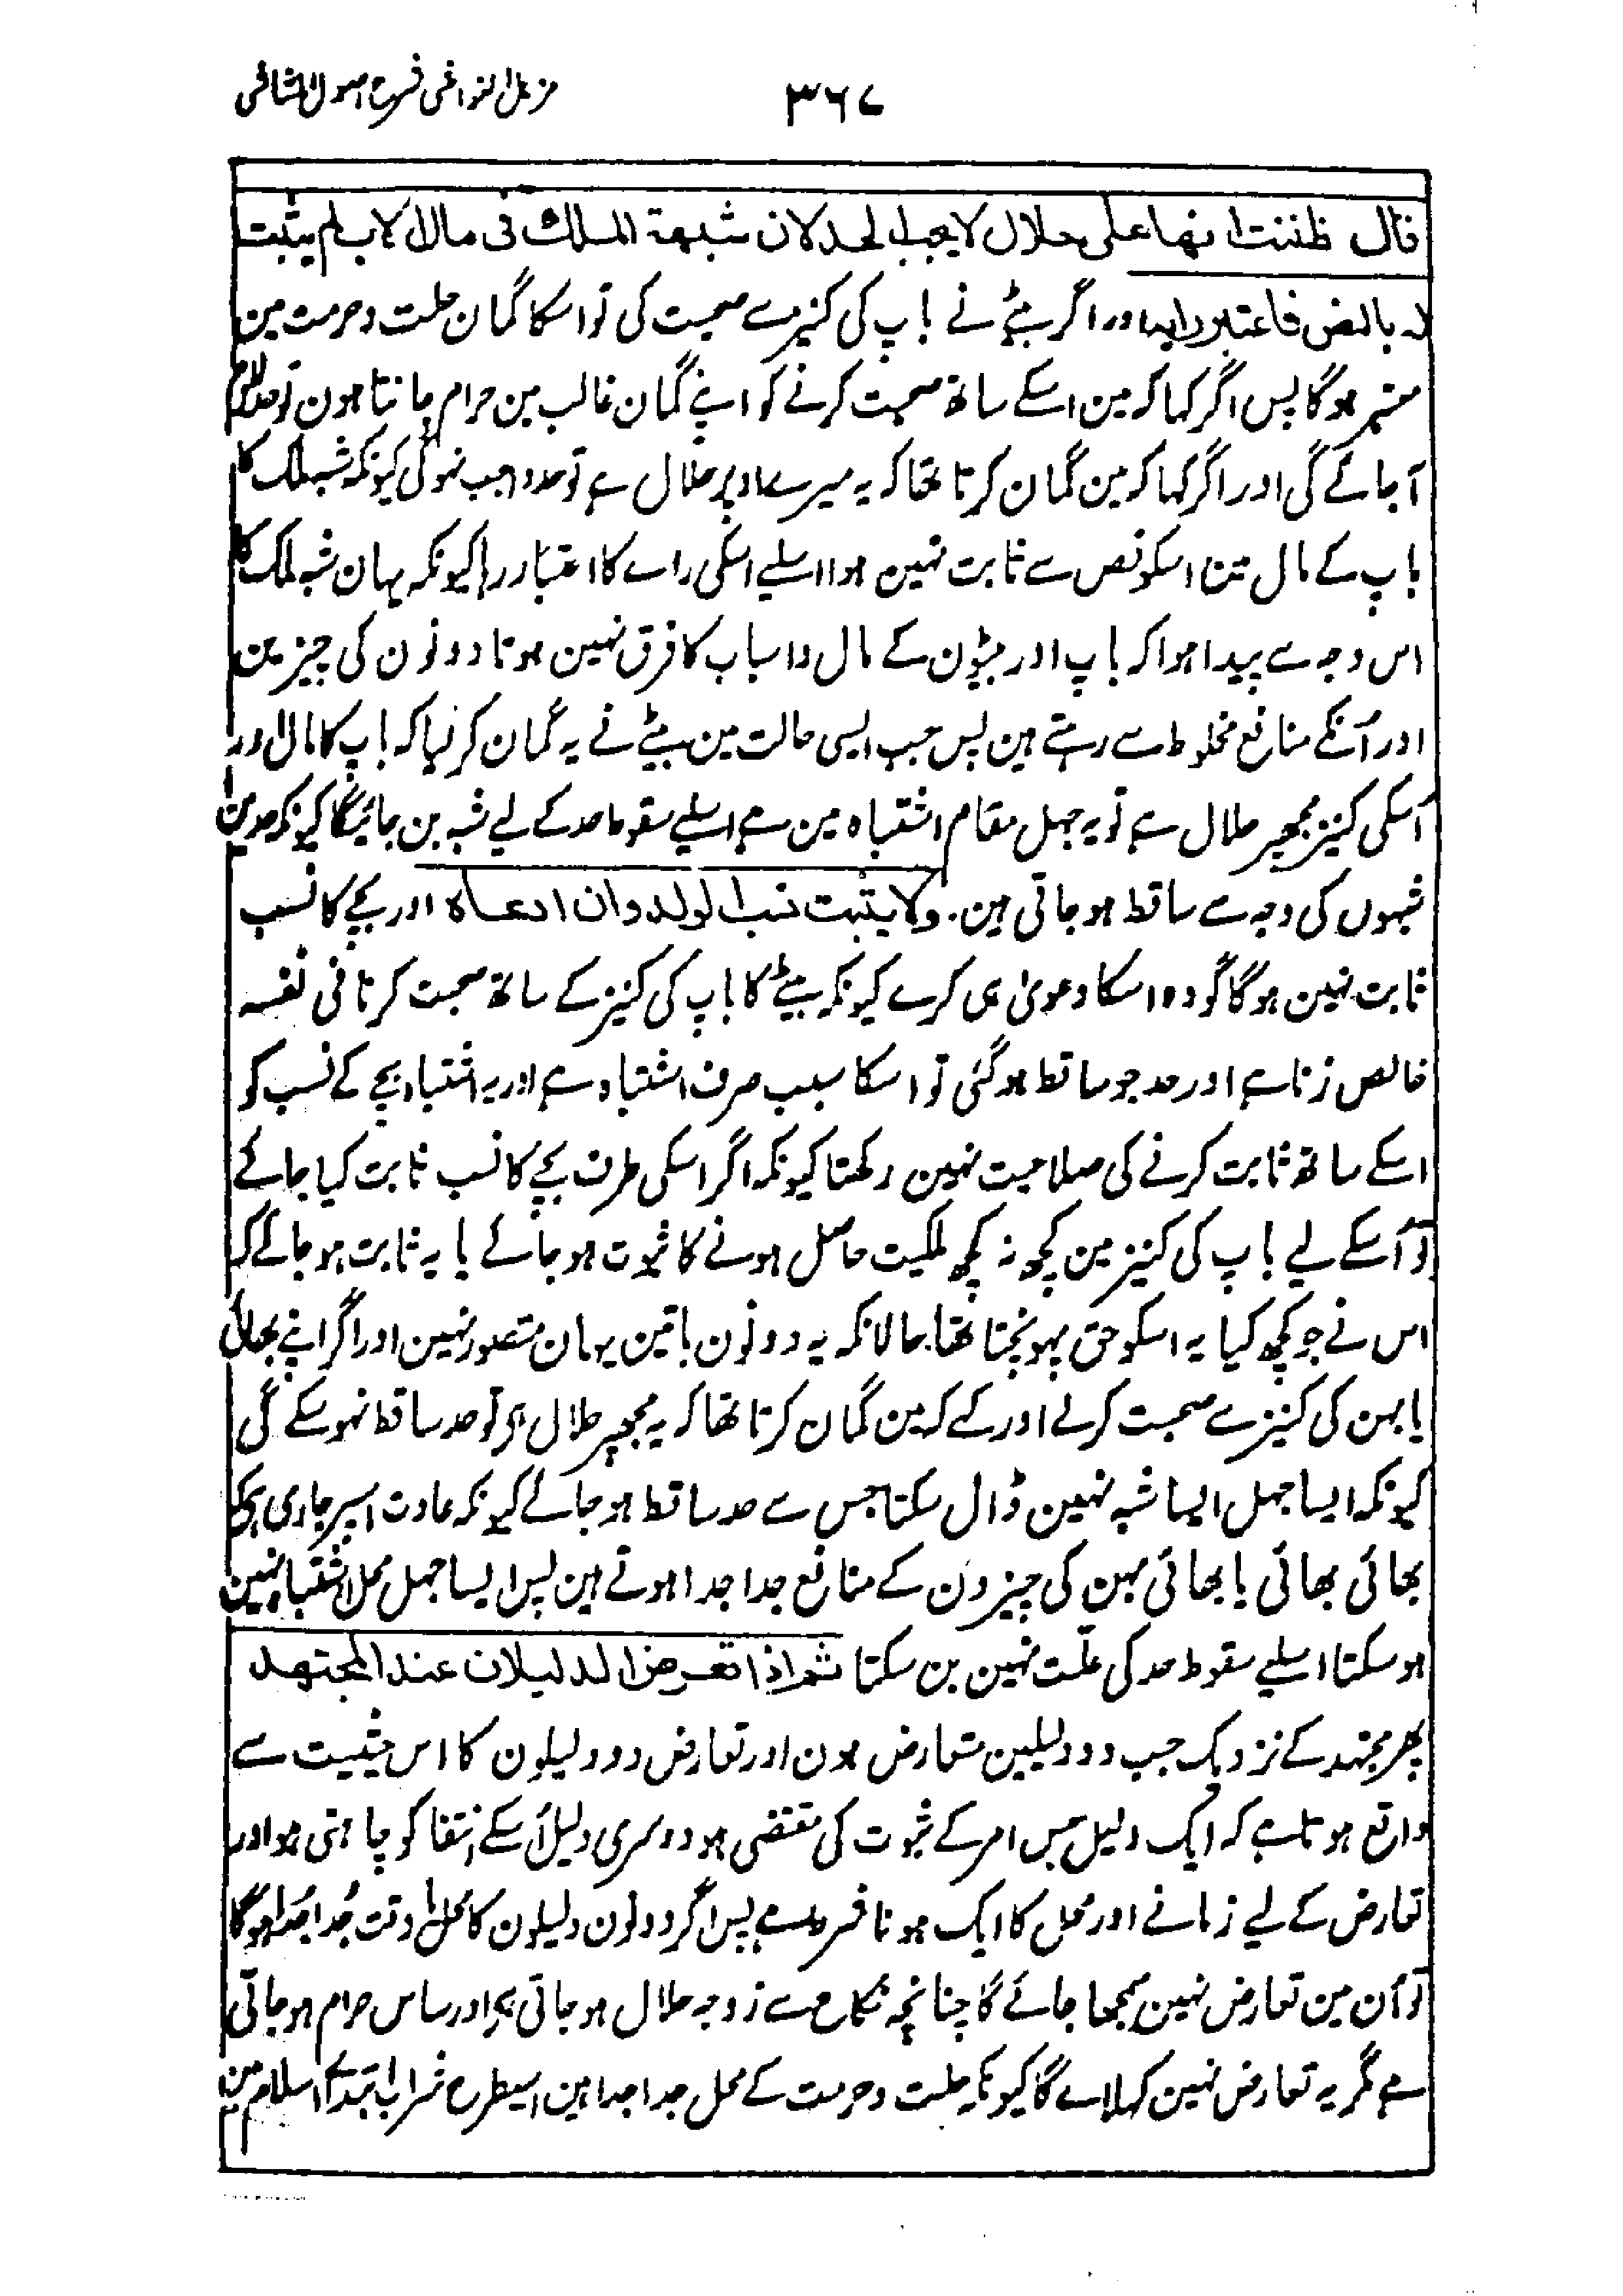 ۳۶۷ مزیل الغواشی شرح اصول الشاشی
قال ظننت انها علی حلال لا یجب الحد لان شبهة الملک فی مال الاب لم یثبت
له بالنص فاعتبر رایه اور اگر بیٹے نے باپ کی کنیز سے صحبت کی تو اسکا گمان حلت و حرمت مین
معتبر ہوگا پس اگر کہا کہ مین اسکے ساتھ صحبت کرنے کو اپنے گمان غالب مین حرام جانتا ہون تو حد لازم
آجائے گی اور اگر کہا کہ مین گمان کرتا تھا کہ یہ میرے اوپر حلال ہے تو حد واجب نہوگی کیونکہ شبہ ملک کا
باپ کے مال مین اسکو نص سے ثابت نہین ہوا اسلیے اسکی راے کا اعتبار رہا کیونکہ یہان شبہ ملک کا
اس وجہ سے پیدا ہوا کہ باپ اور بیٹون کے مال و اسباب کا فرق نہین ہوتا دونون کی چیزین
اور اُنکے منافع مخلوط سے رہتے ہین پس جب ایسی حالت مین بیٹے نے یہ گمان کر لیا کہ باپ کا مال اور
اُسکی کنیز مجھپر حلال ہے تو یہ جہل مقام اشتباہ مین ہے اسلیے سقوط حد کے لیے شبہ بن جائیگا کیونکہ حدین
شبہوں کی وجہ سے ساقط ہو جاتی ہین۔ ولا یثبت نسب الولد وان ادعاه اور بچے کا نسب
ثابت نہین ہوگا گو وہ اسکا دعویٰ ہی کرے کیونکہ بیٹے کا باپ کی کنیز کے ساتھ صحبت کرنا فی نفسہ
خالص زنا ہے اور حد جو ساقط ہو گئی تو اسکا سبب صرف اشتباہ ہے اور یہ اشتباہ بچے کے نسب کو
اسکے ساتھ ثابت کرنے کی صلاحیت نہین رکھتا کیونکہ اگر اسکی طرف بچے کا نسب ثابت کیا جائے
تو اُسکے لیے باپ کی کنیز مین کچھ نہ کچھ ملکیت حاصل ہونے کا ثبوت ہو جائے یا یہ ثابت ہو جائے کہ
اس نے جو کچھ کیا یہ اسکو حق پہونچتا تھا۔ حالانکہ یہ دونون باتین یہان متصور نہین اور اگر اپنے بھائی
یا بہن کی کنیز سے صحبت کرلے اور کہے کہ مین گمان کرتا تھا کہ یہ مجھپر حلال ہی تو حد ساقط نہوسکے گی
کیونکہ ایسا جہل ایسا شبہ نہین ڈال سکتا جس سے حد ساقط ہو جائے کیونکہ عادت اسپر جاری ہی کہ
بھائی بھائی یا بھائی بہن کی چیزون کے منافع جدا جدا ہوتے ہین پس ایسا جہل محل اشتباہ نہین
ہو سکتا اسلیے سقوط حد کی علّت نہین بن سکتا ثم اذا تعرض الدلیلان عند المجتهد
پھر مجتہد کے نزدیک جب دو دلیلین متعارض ہون اور تعارض دو دلیلون کا اس حیثیت سے
واقع ہوتا ہے کہ ایک دلیل جس امر کے ثبوت کی مقتضی ہو دوسری دلیل اُسکے انتفا کو چاہتی ہو اور
تعارض کے لیے زمانے اور محل کا ایک ہونا شرط ہے پس اگر دونون دلیلون کا محل وقت جُدا جُدا ہوگا
تو اُن مین تعارض نہین سمجھا جائے گا چنانچہ نکاح سے زوجہ حلال ہو جاتی ہی اور ساس حرام ہو جاتی
ہے مگر یہ تعارض نہین کہلاے گا کیونکہ حلت و حرمت کے محل جدا جدا ہین اسیطرح شراب ابتداے اسلام مین